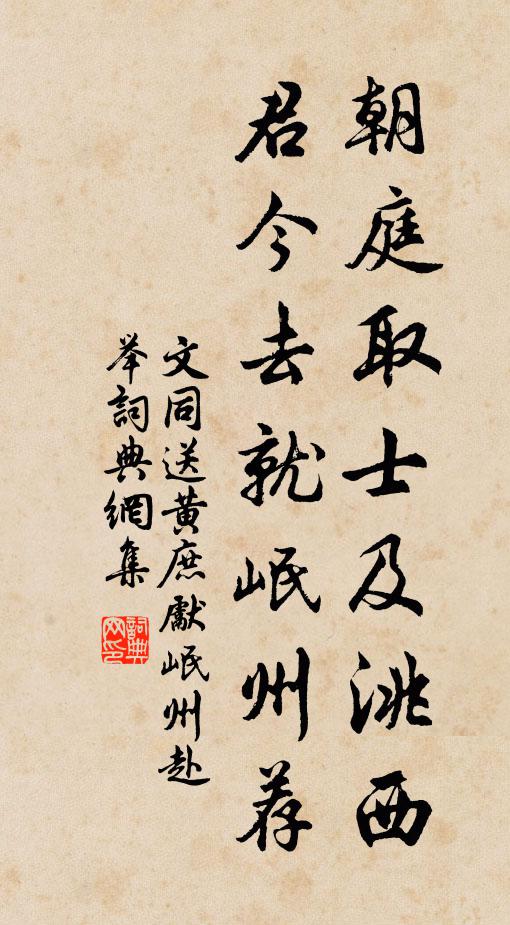 朝庭取士及洮西
君今去就岷州荐
文同送黄庶獻岷州赴
举詞典網集
詞典網印